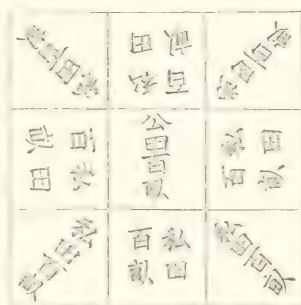 私田百畝
私田百畝
私田百畝
私田百畝
公田百畝
私田百畝
私田百畝
私田百畝
私田百畝